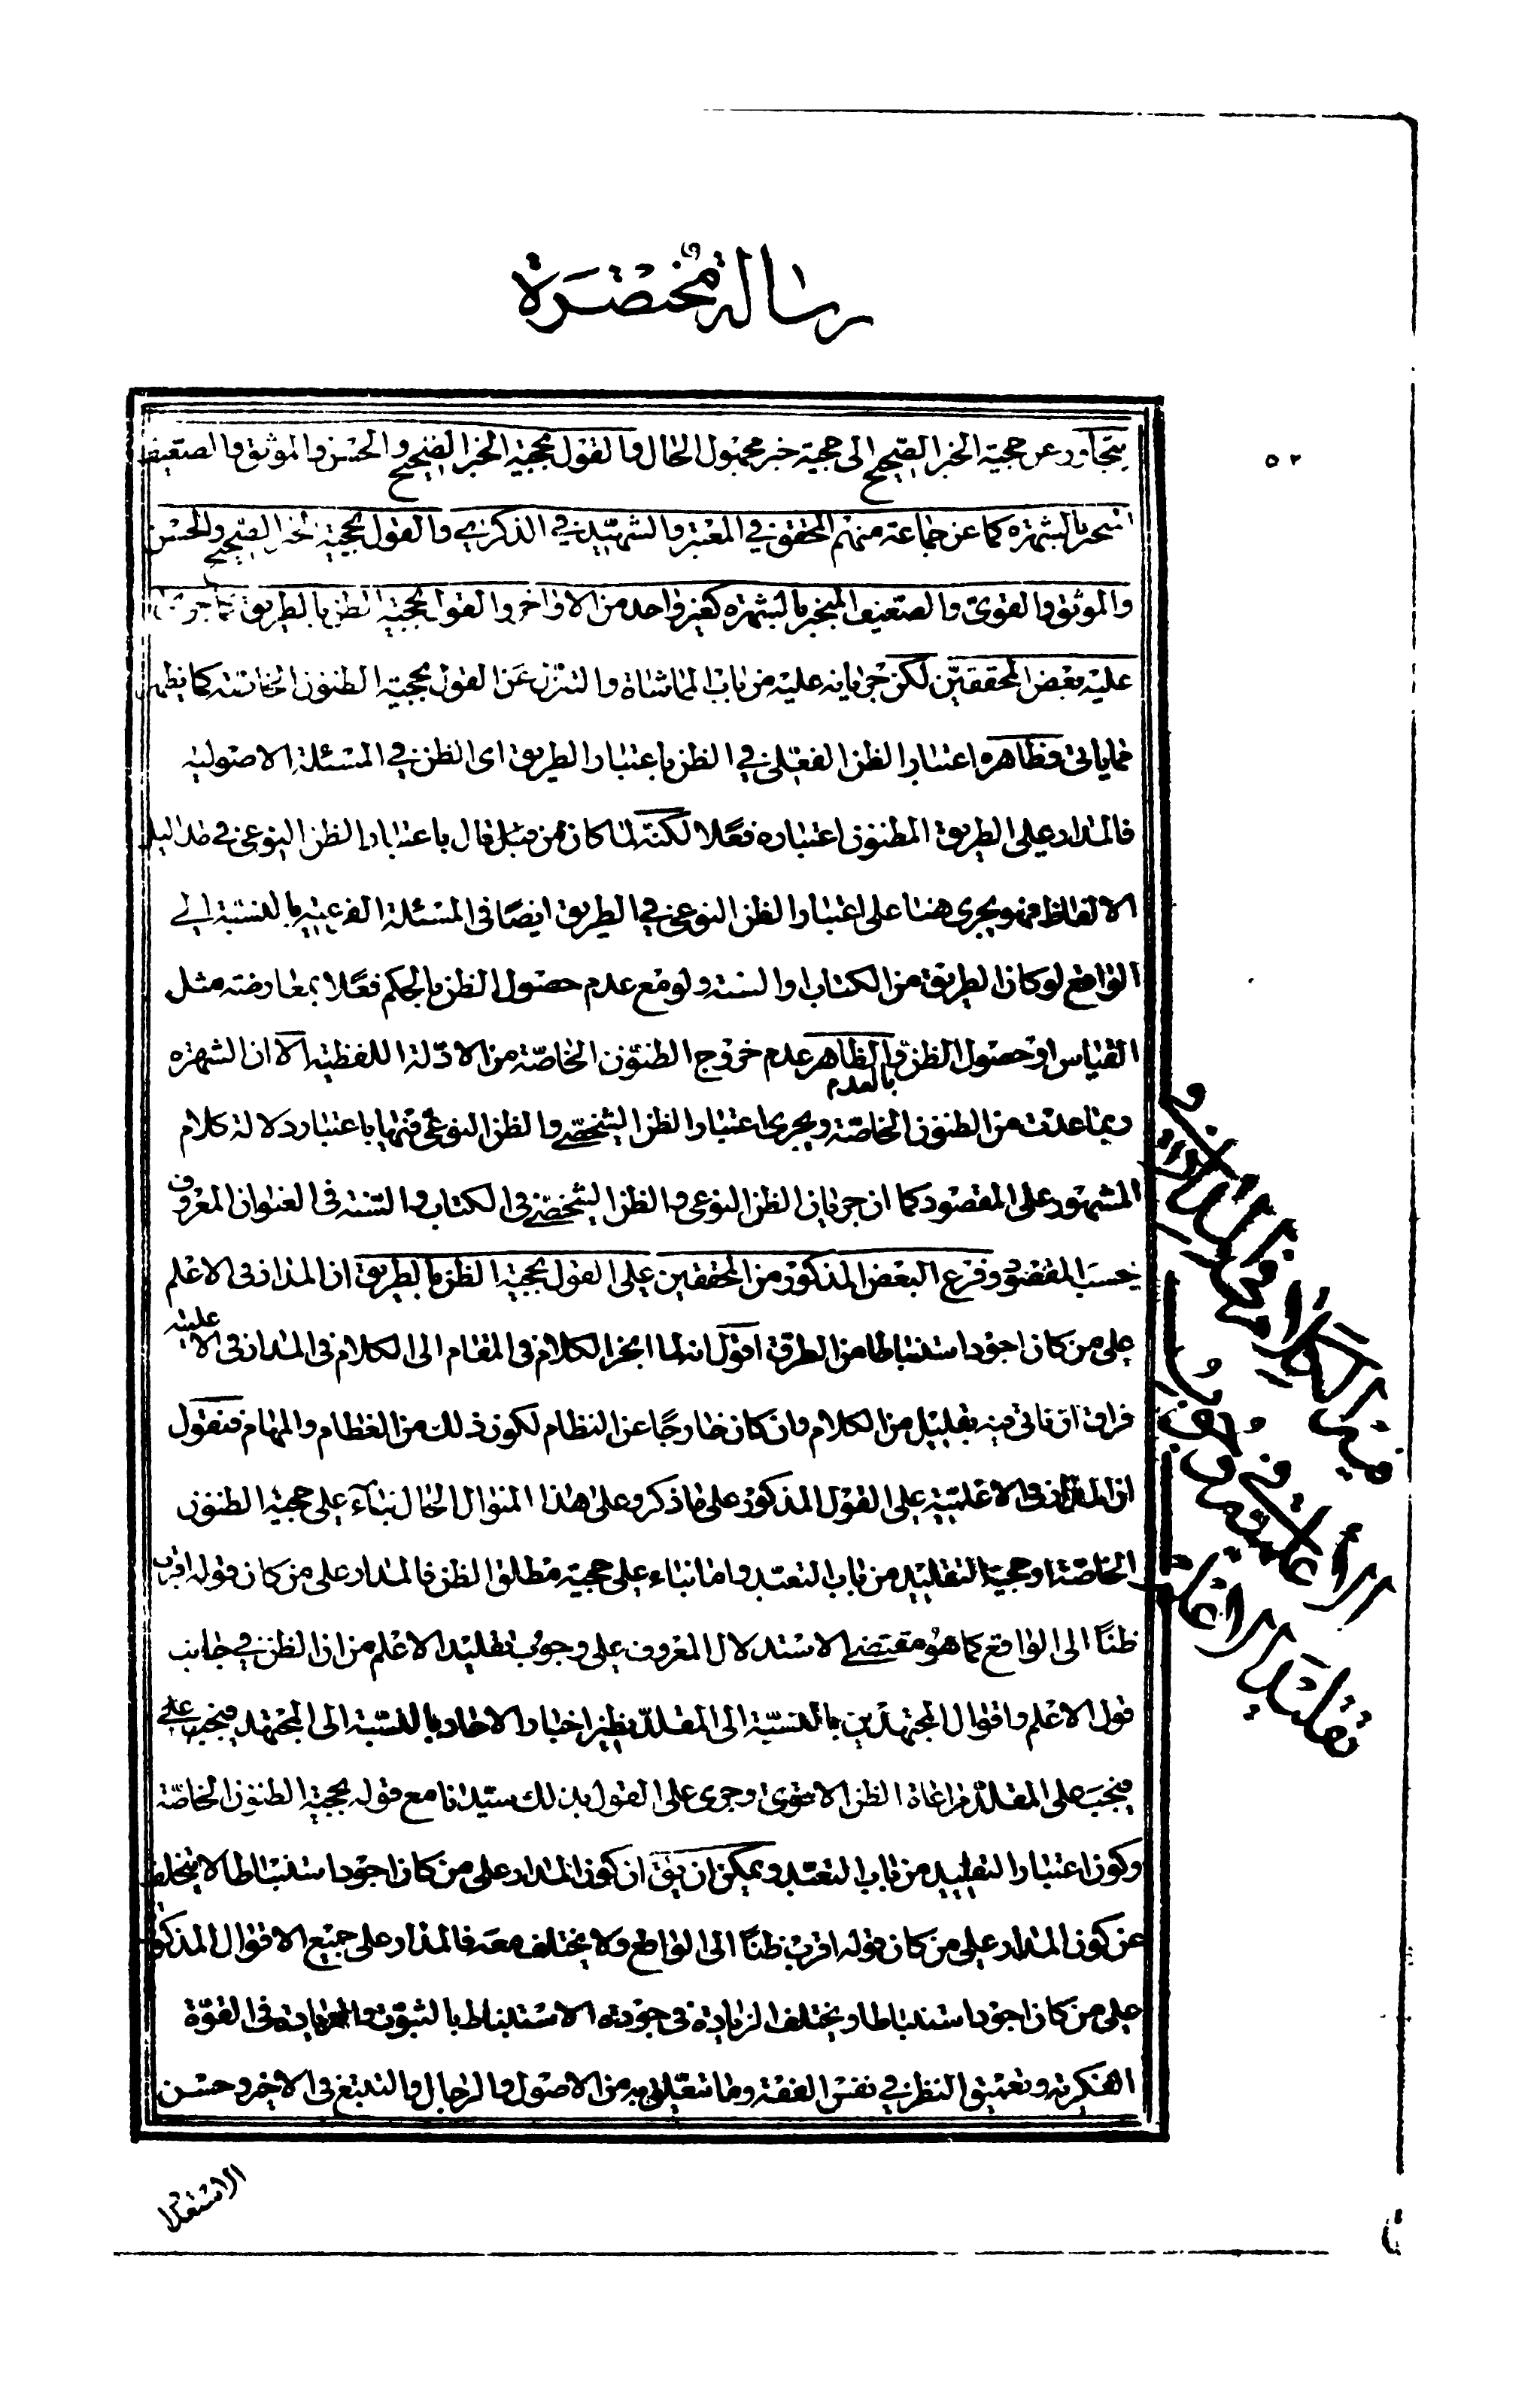 رسالة مختصرة
٥٢
يتجاوز عن حجية الخبر الصحيح الى حجية خبر مجهول الحال والقول بحجية الخبر الصحيح والحسن والموثق والضعيف
بالشهرة كما عن جماعة منهم المحقق في المعتبر والشهيد في الذكرى والقول بحجية الخبر الصحيح والحسن
والموثق والقوى والضعيف المنجبر بالشهرة كغير واحد من الاواخر والقول بحجية الظن بالطريق كما جرى
عليه بعض المحققين لكن جريانه عليه من باب المماشاة والتنزل عن القول بحجية الظنون الخاصة كما يظهر
مما ياتى وظاهره اعتبار الظن الفعلى في الظن باعتبار الطريق اى الظن في المسئلة الاصولية
فالمدار على الطريق المظنون اعتباره فعلا لكنه لما كان من قبل قال باعتبار الظن النوعى في
الالفاظ فهو يجرى هنا على اعتبار الظن النوعى في الطريق ايضا فى المسئلة الفرعية بالنسبة الى
الواقع لو كان الطريق من الكتاب والسنة ولو مع عدم حصول الظن بالحكم فعلا بمعارضة مثل
القياس او حصول الظن بالعدم والظاهر عدم خروج الظنون الخاصة من الادلة اللفظية الا ان الشهرة
ربما عدت من الظنون الخاصة ويجرى اعتبار الظن الشخصى والظن النوعى فيها باعتبار دلالة كلام
المشهور على المقصود كما ان جريان الظن النوعى والظن الشخصى فى الكتاب والسنة فى العنوان المعروف
بحسب المقصود وفرع البعض المذكور من المحققين على القول بحجية الظن بالطريق ان المدار فى الاعلم
على من كان اجود استنباطا من الطرق اقول انه لما انجر الكلام فى المقام الى الكلام فى المدار فى الاعلمية
فراق ان ناتى فيه بقليل من الكلام وان كان خارجا عن النظام لكون ذلك من العظام والمهام فنقول
ان المدار فى الاعلمية على القول المذكور على ما ذكر وعلى هذا المنوال الحال بناء على حجية الظنون
الخاصة او حجية التقليد من باب التعبد واما بناء على حجية مطلق الظن فالمدار على من كان قوله اقرب
ظنا الى الواقع كما هو مقتضى الاستدلال المعروف على وجوب تقليد الاعلم من ان الظن في جانب
قول الاعلم واقوال المجتهدين بالنسبة الى المقلد نظير اخبار الاحاد بالنسبة الى المجتهد فيجب على
فيجب على المقلد مراعاة الظن الاقوى وجرى على القول بذلك سيدنا مع قوله بحجية الظنون الخاصة
وكون اعتبار التقليد من باب التعبد ويمكن ان يق ان كون المدار على من كان اجود استنباطا لا يتخلف
عن كون المدار على من كان قوله اقرب ظنا الى الواقع ولا يختلف معه فالمدار على جميع الاقوال المذكورة
على من كان اجود استنباطا ويختلف الزيادة فى جودة الاستنباط بالتفوق والزيادة فى القوة
الفكرية وتعميق النظر في نفس الفقه وما يتعلق به من الاصول والرجال والتتبع فى الاخير وحسن
الاستقراء
فى الكلام فى المدار فى
الاعلمية وفى وجوب
تقليد الاعلم